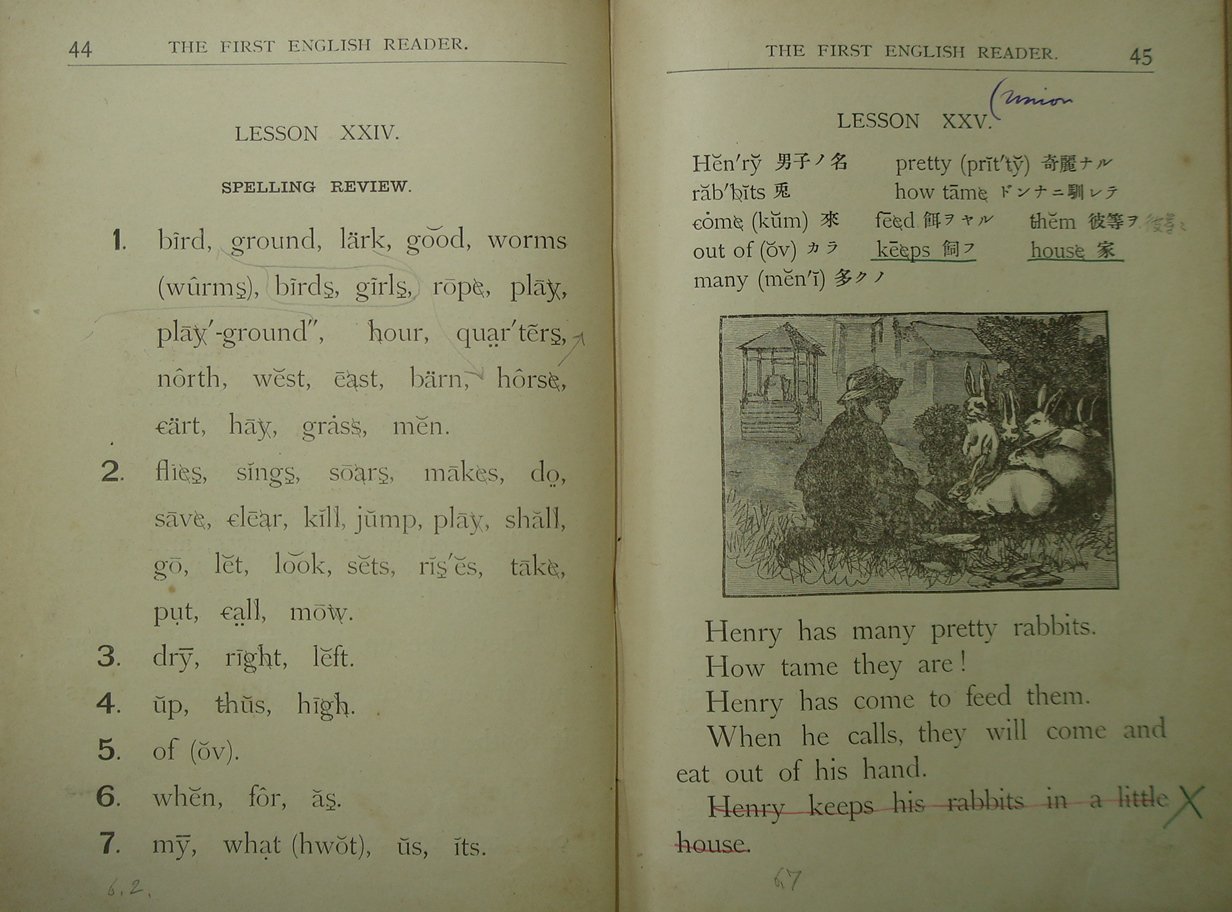 44 THE FIRST ENGLISH READER.
LESSON XXIV.
SPELLING REVIEW.
1. bĩrd, ground, lärk, go͝od, worms
(wûrmş), bĩrdş, gĩrlş, rōpe, plāy,
plāy′-ground″, hour, quạr′tẽrş,
nôrth, wĕst, ēast, bärn, hôrse,
cärt, hāy, grȧss, mĕn.
2. flīeş, sĭngş, sōarş, mākes, dọ,
sāve, clēar, kĭll, jŭmp, plāy, shăll,
gō, lĕt, lo͝ok, sĕts, rīş′ĕs, tāke,
pụt, cạll, mōw.
3. drȳ, rīght, lĕft.
4. ŭp, thŭs, hīgh.
5. of (ŏv).
6. whĕn, fôr, ăş.
7. mȳ, whạt (hwŏt), ŭs, ĭts.
6.2.
THE FIRST ENGLISH READER. 45
union
LESSON XXV.
Hĕn′rў 男子ノ名 pretty (prĭt′tў) 奇麗ナル
răb′bĭts 兎 how tāme ドンナニ馴レテ
cȯme (kŭm) 來 fēed 餌ヲヤル thĕm 彼等ヲ 彼等ニ
out of (ŏv) カラ kēeps 飼フ house 家
many (mĕn′ĭ) 多クノ
Henry has many pretty rabbits.
How tame they are!
Henry has come to feed them.
When he calls, they will come and
eat out of his hand.
Henry keeps his rabbits in a little
house.
67